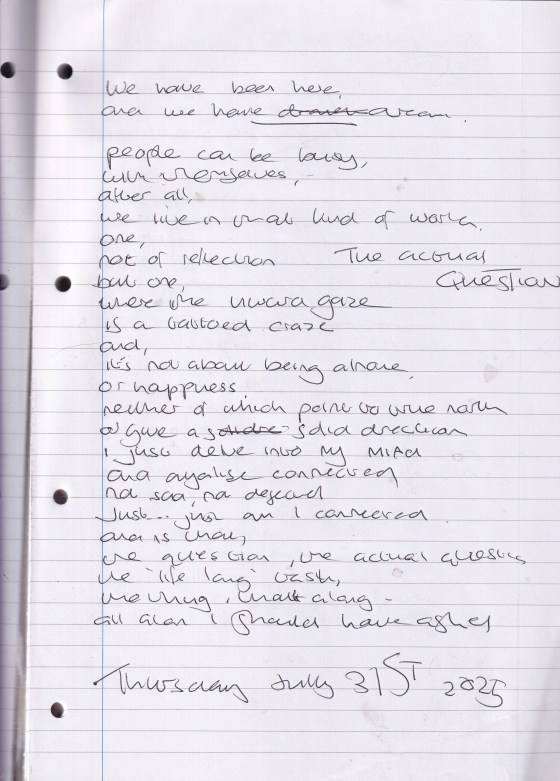 We have been here,
and we have dream.
people can be busy,
with themselves,
after all,
we live in that kind of world.
one,
not of reflection
The actual
Question
but one,
where the inward gaze
is a tabboed craze
and,
it's not about being alone,
or happiness.
neither of which point to true north
or give a solid direction
I just delve into my mind
and analise connected
not sad, not dejected
Just... just am I connected.
and is that,
the question, the actual question
the 'life long' task,
the thing, that along -
all alon I should have asked
Thursday July 31ST 2025